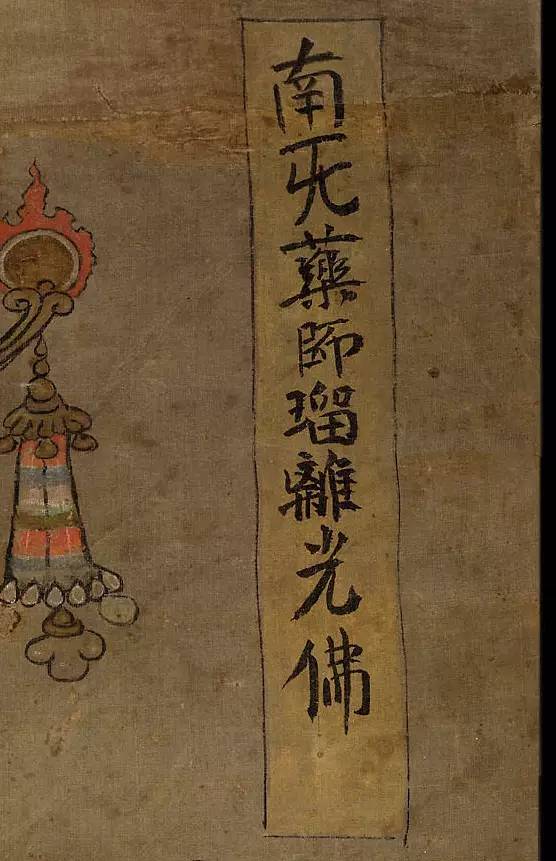 南无藥師瑠離光佛